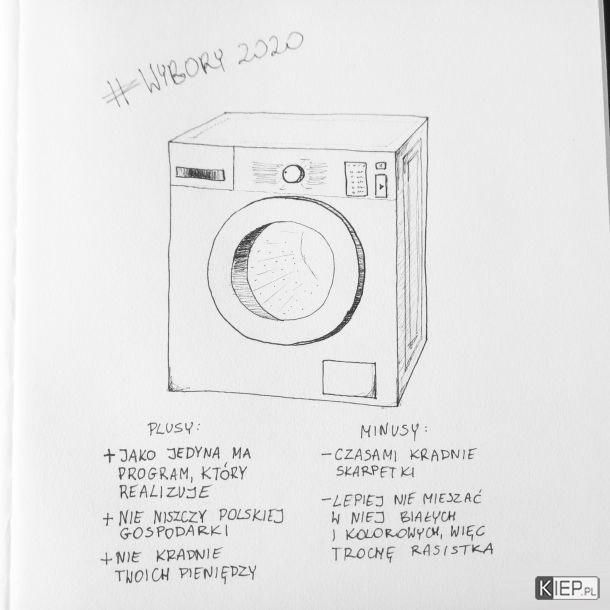 #WYBORY 2020
PLUSY:
+ JAKO JEDYNA MA
PROGRAM, KTÓRY
REALIZUJE
+ NIE NISZCZY POLSKIEJ
GOSPODARKI
+ NIE KRADNIE
TWOICH PIENIĘDZY
MINUSY:
- CZASAMI KRADNIE
SKARPETKI
- LEPIEJ NIE MIESZAĆ
W NIEJ BIAŁYCH
I KOLOROWYCH, WIĘC
TROCHĘ RASISTKA
KIEP.PL